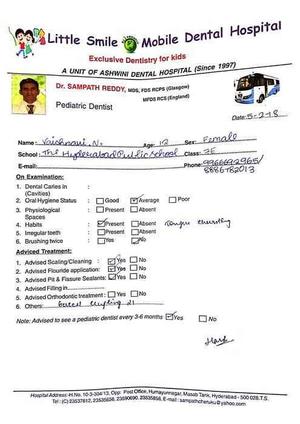 Little Smile Mobile Dental Hospital
Exclusive Dentistry for kids
A UNIT OF ASHWINI DENTAL HOSPITAL (Since 1997)
Dr. SAMPATH REDDY, MDS, FDS RCPS (Glasgow)
MFDS RCS (England)
Pediatric Dentist
Date: 5-2-18
Name: Vaishnavi. N. Age: 12 Sex: Female
School: The Hyderabad Public School Class: 7E
E-mail: Phone:
On Examination:
1. Dental Caries in (Cavities) :
2. Oral Hygiene Status : Good Average Poor
3. Physiological Spaces : Present Absent
4. Habits : Present Absent Tongue thrusting
5. Irregular teeth : Present Absent
6. Brushing twice : Yes No
Adviced Treatment:
1. Advised Scaling/Cleaning : Yes No
2. Advised Flouride application : Yes No
3. Advised Pit & Fissure Sealants : Yes No
4. Advised Filling in
5. Advised Orthodontic treatment : Yes No
6. Others:
Note: Advised to see a pediatric dentist every 3-6 months Yes No
Hospital Address: H.No. 10-3-304/13, Opp: Post Office, Humayunnagar, Masab Tank, Hyderabad - 500 028.T.S.